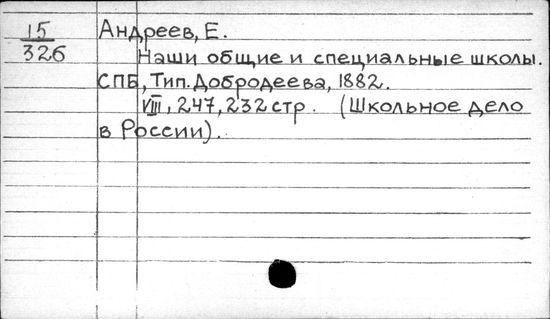 15 Андреев, Е.
326 Наши общие и специальные школы.
СПБ, Тип. Добродеева, 1882.
VIII, 247, 232 стр. (Школьное дело
в России).